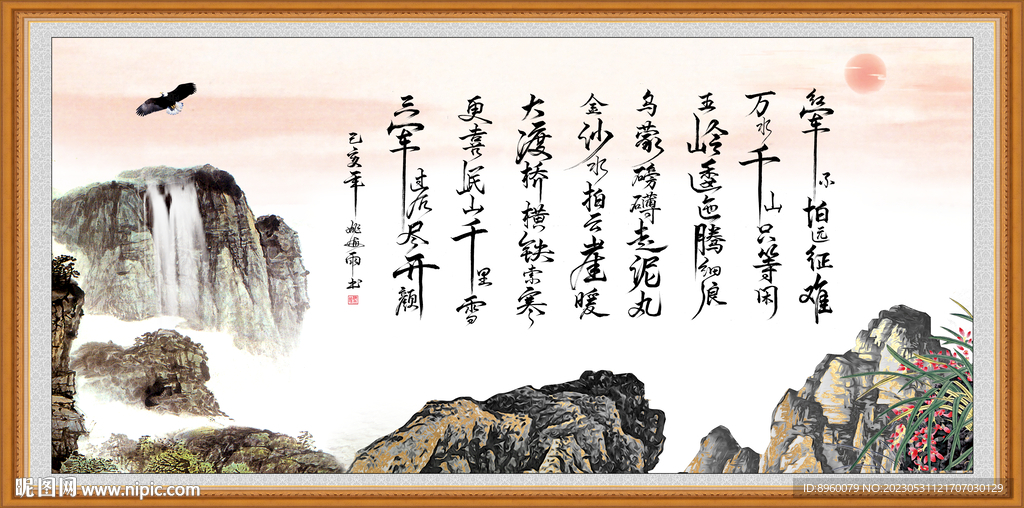 红军不怕远征难
万水千山只等闲
五岭逶迤腾细浪
乌蒙磅礴走泥丸
金沙水拍云崖暖
大渡桥横铁索寒
更喜岷山千里雪
三军过后尽开颜
己亥年 姚雨书
昵图网 www.nipic.com
ID:8960079 NO:20230531121707030129